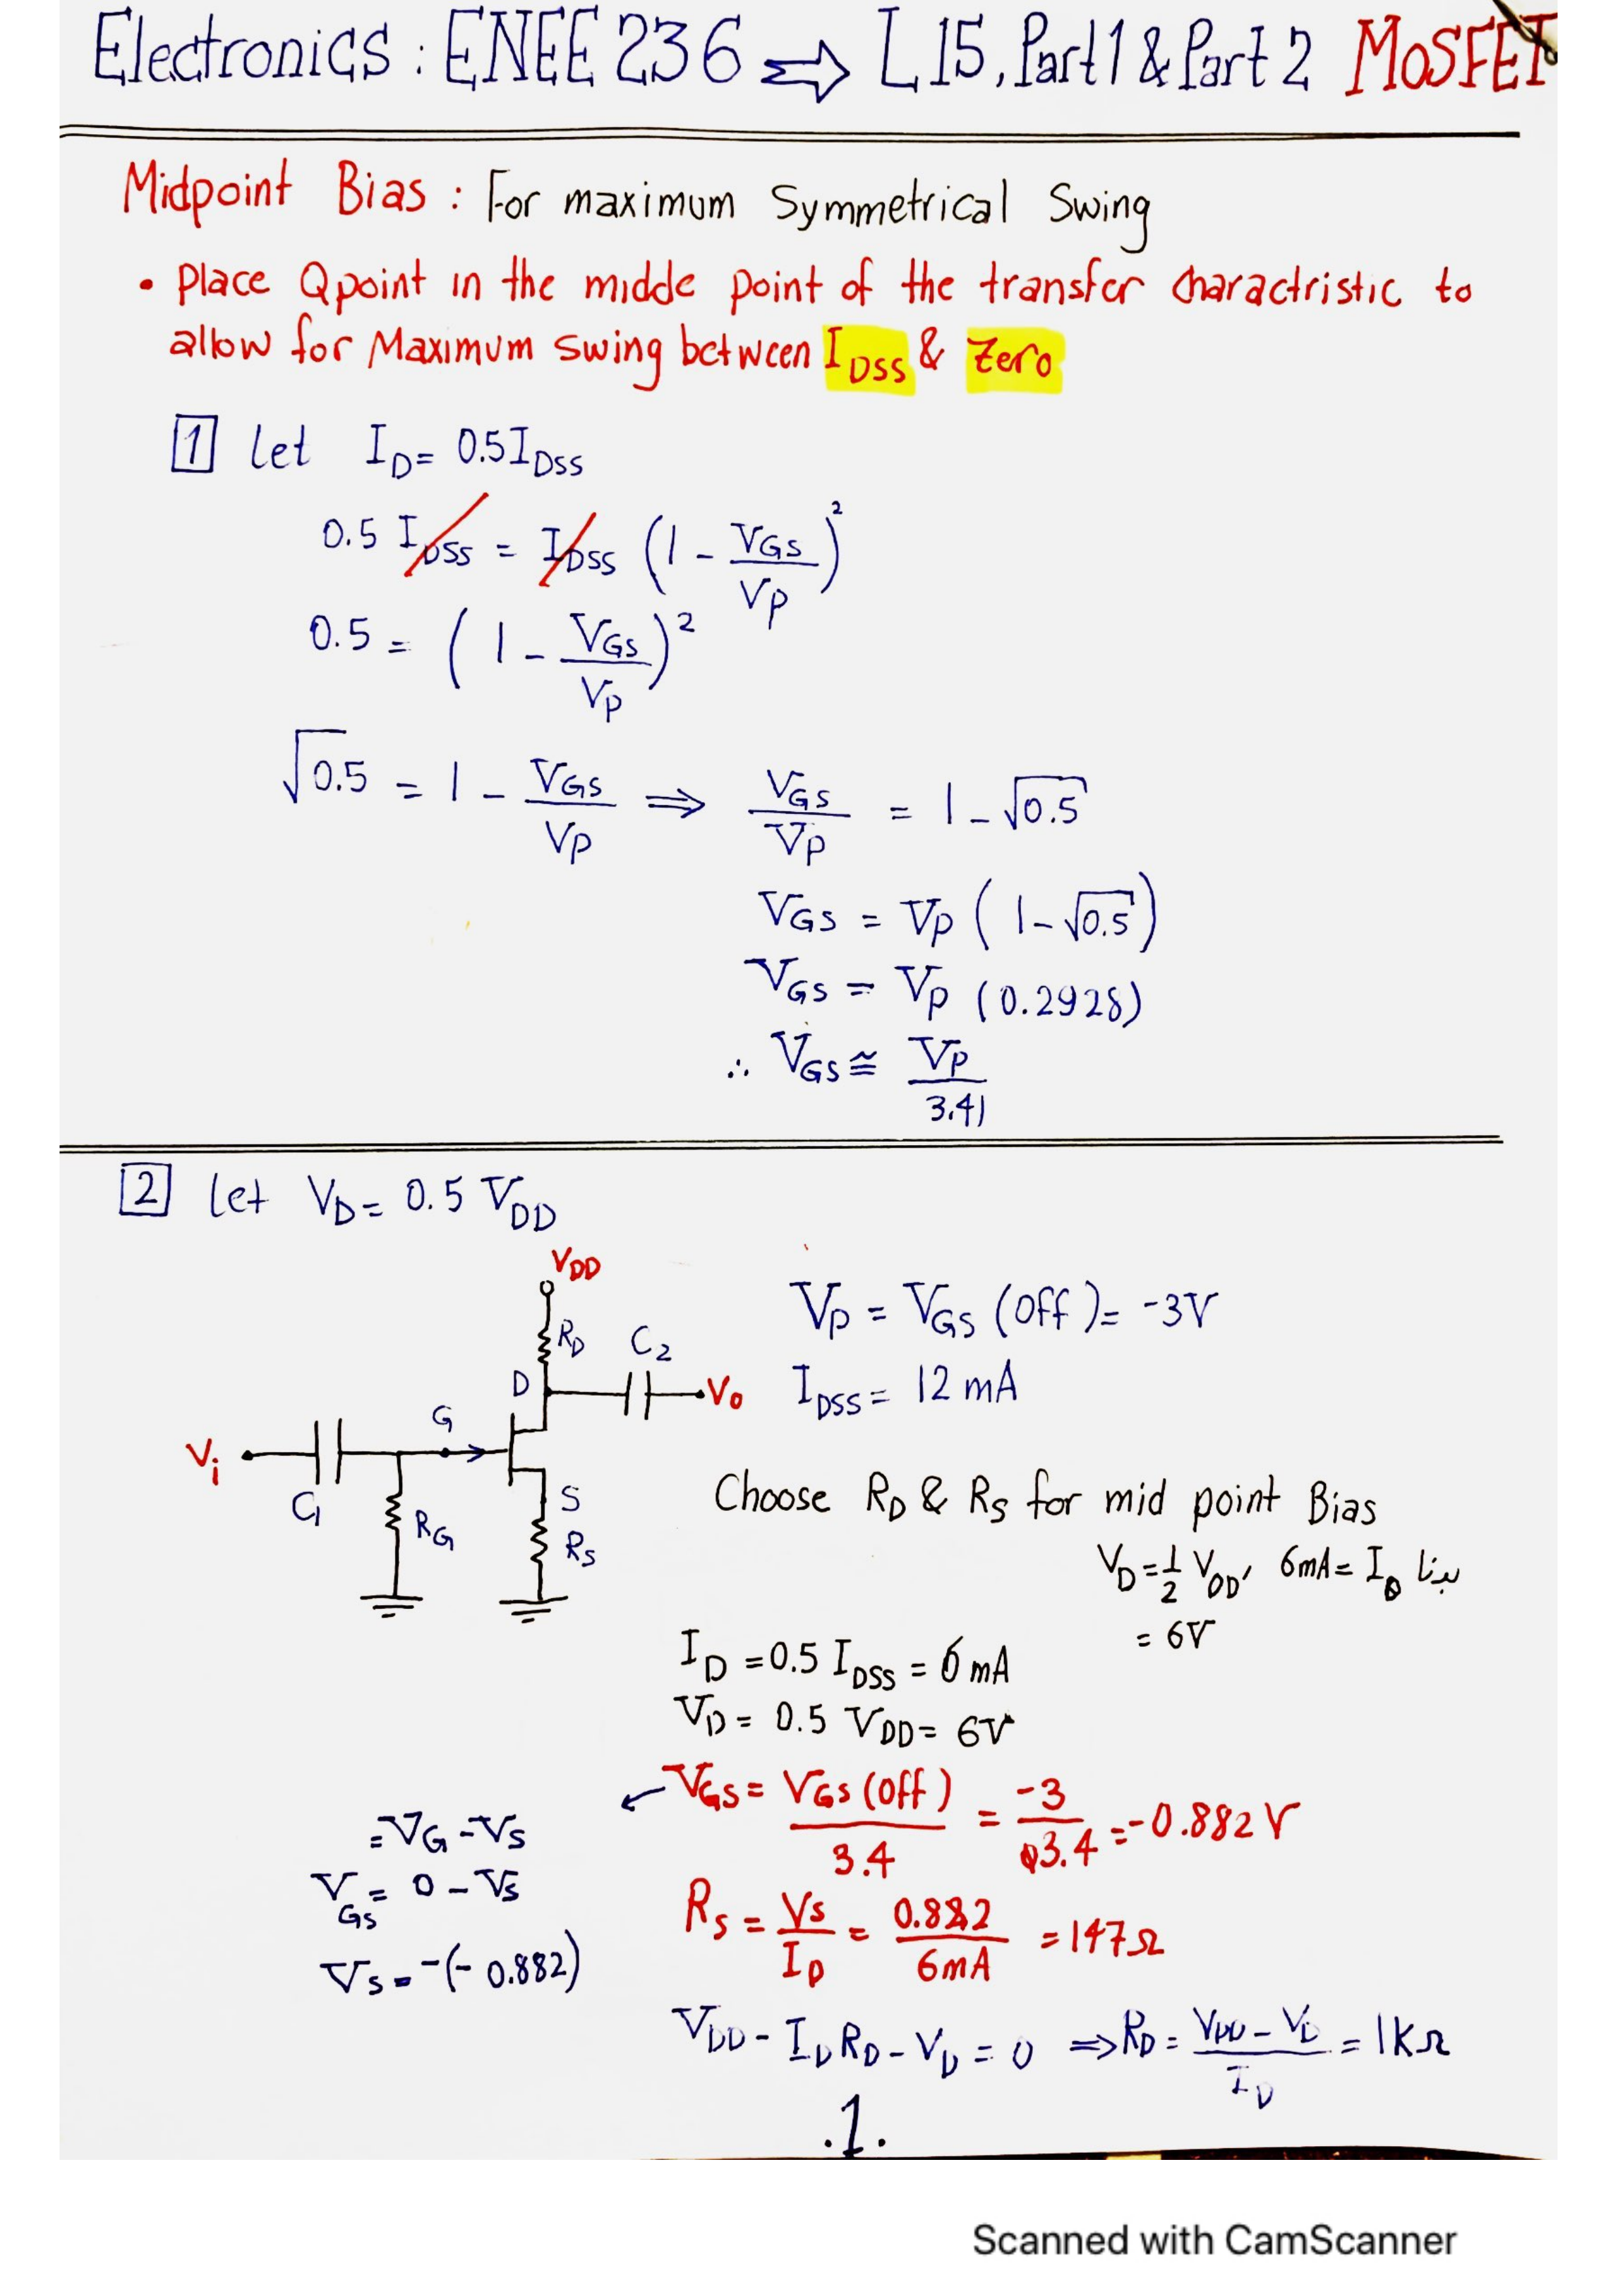 Electronics : ENEE 236 ⇒ L15, Part 1 & Part 2 MOSFET
Midpoint Bias : For maximum Symmetrical Swing
• Place Qpoint in the midde point of the transfer charactristic to
allow for Maximum swing between I_DSS & Zero
1 let I_D = 0.5 I_DSS
0.5 I_DSS = I_DSS (1 - V_GS / V_P)²
0.5 = (1 - V_GS / V_P)²
√0.5 = 1 - V_GS / V_P ⇒ V_GS / V_P = 1 - √0.5
V_GS = V_P (1 - √0.5)
V_GS = V_P (0.2928)
∴ V_GS ≅ V_P / 3.41
2 let V_D = 0.5 V_DD
V_DD
R_D
C_2
D
V_o
G
V_i
C_1
R_G
S
R_S
V_P = V_GS (off) = -3V
I_DSS = 12 mA
Choose R_D & R_S for mid point Bias
V_D = 1/2 V_DD, 6mA = I_D بدنا
= 6V
I_D = 0.5 I_DSS = 6 mA
V_D = 0.5 V_DD = 6V
← V_GS = V_GS (off) / 3.4 = -3 / 3.4 = -0.882 V
= V_G - V_S
V_GS = 0 - V_S
V_S = -(-0.882)
R_S = V_S / I_D = 0.882 / 6mA = 147Ω
V_DD - I_D R_D - V_D = 0 ⇒ R_D = V_DD - V_D / I_D = 1KΩ
.1.
Scanned with CamScanner